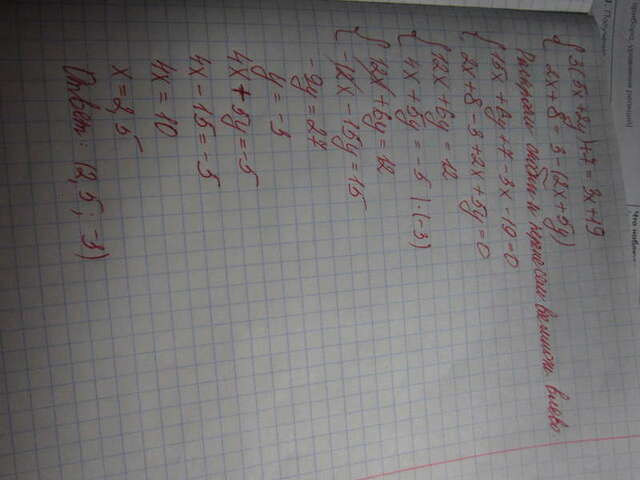 { 3(5x+2y)+7=3x+19
2x+8=3-(2x+5y)
Раскроем скобки и перенесём влево
{ 15x+6y+7-3x-19=0
2x+8-3+2x+5y=0
{ 12x+6y=12
4x+5y=-5 |·(-3)
{ 12x+6y=12
-12x-15y=15
-9y=27
y=-3
4x+5y=-5
4x-15=-5
4x=10
x=2,5
Ответ: (2,5; -3)
Что нового